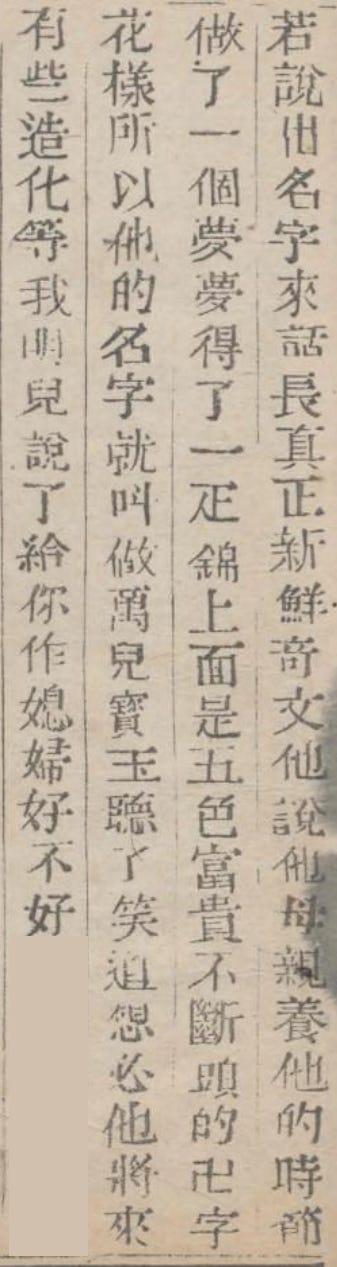 若說出名字來話長真正新鮮奇文他說他母親養他的時節
做了一個夢夢得了一疋錦上面是五色富貴不斷頭的卍字
花樣所以他的名字就叫做萬兒寳玉聽了笑道想必他將來
有些造化等我明兒說了給你作媳婦好不好